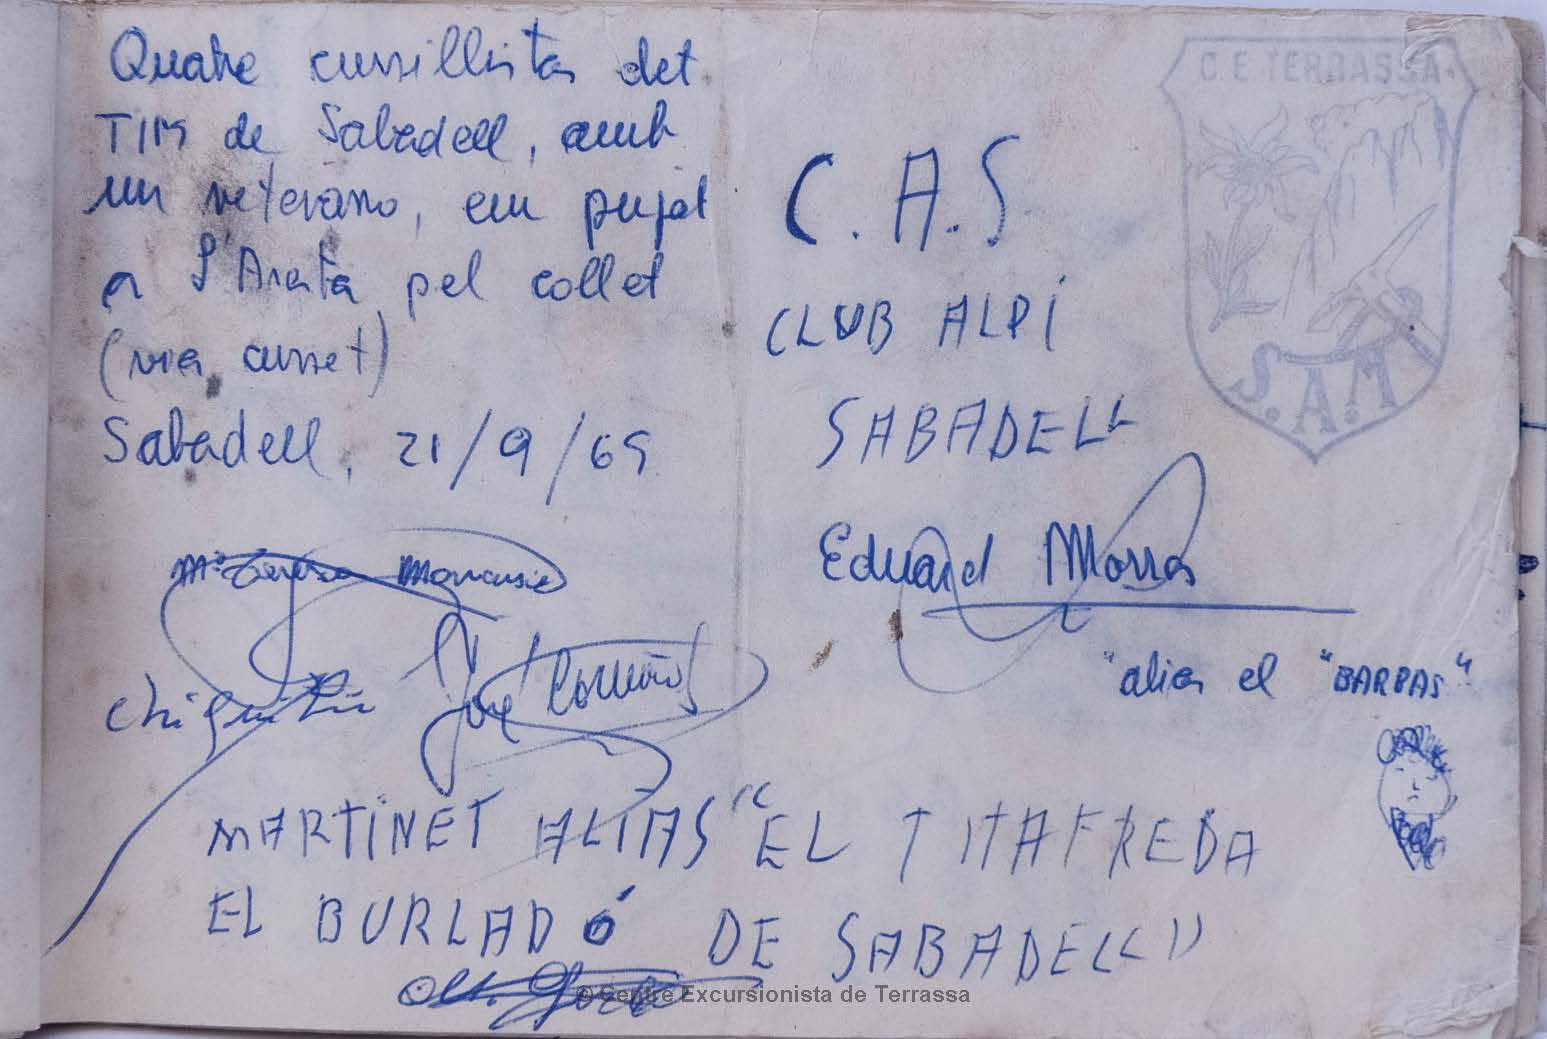 Quatre cursillistas del
TIM de Sabadell, amb
un veterano, em pujat
a S'Arista pel collet
(via cursset)
Sabadell, 21/9/69
Mª Teresa
Chiquitin José
C.A.S
CLUB ALPÍ
SABADELL
Eduard Morras
"alies el "BARBAS"
MARTINET ALIAS "EL TITAFREDA
EL BURLADÓ DE SABADELL"
C.E TERRASSA
S.A.M
© Centre Excursionista de Terrassa